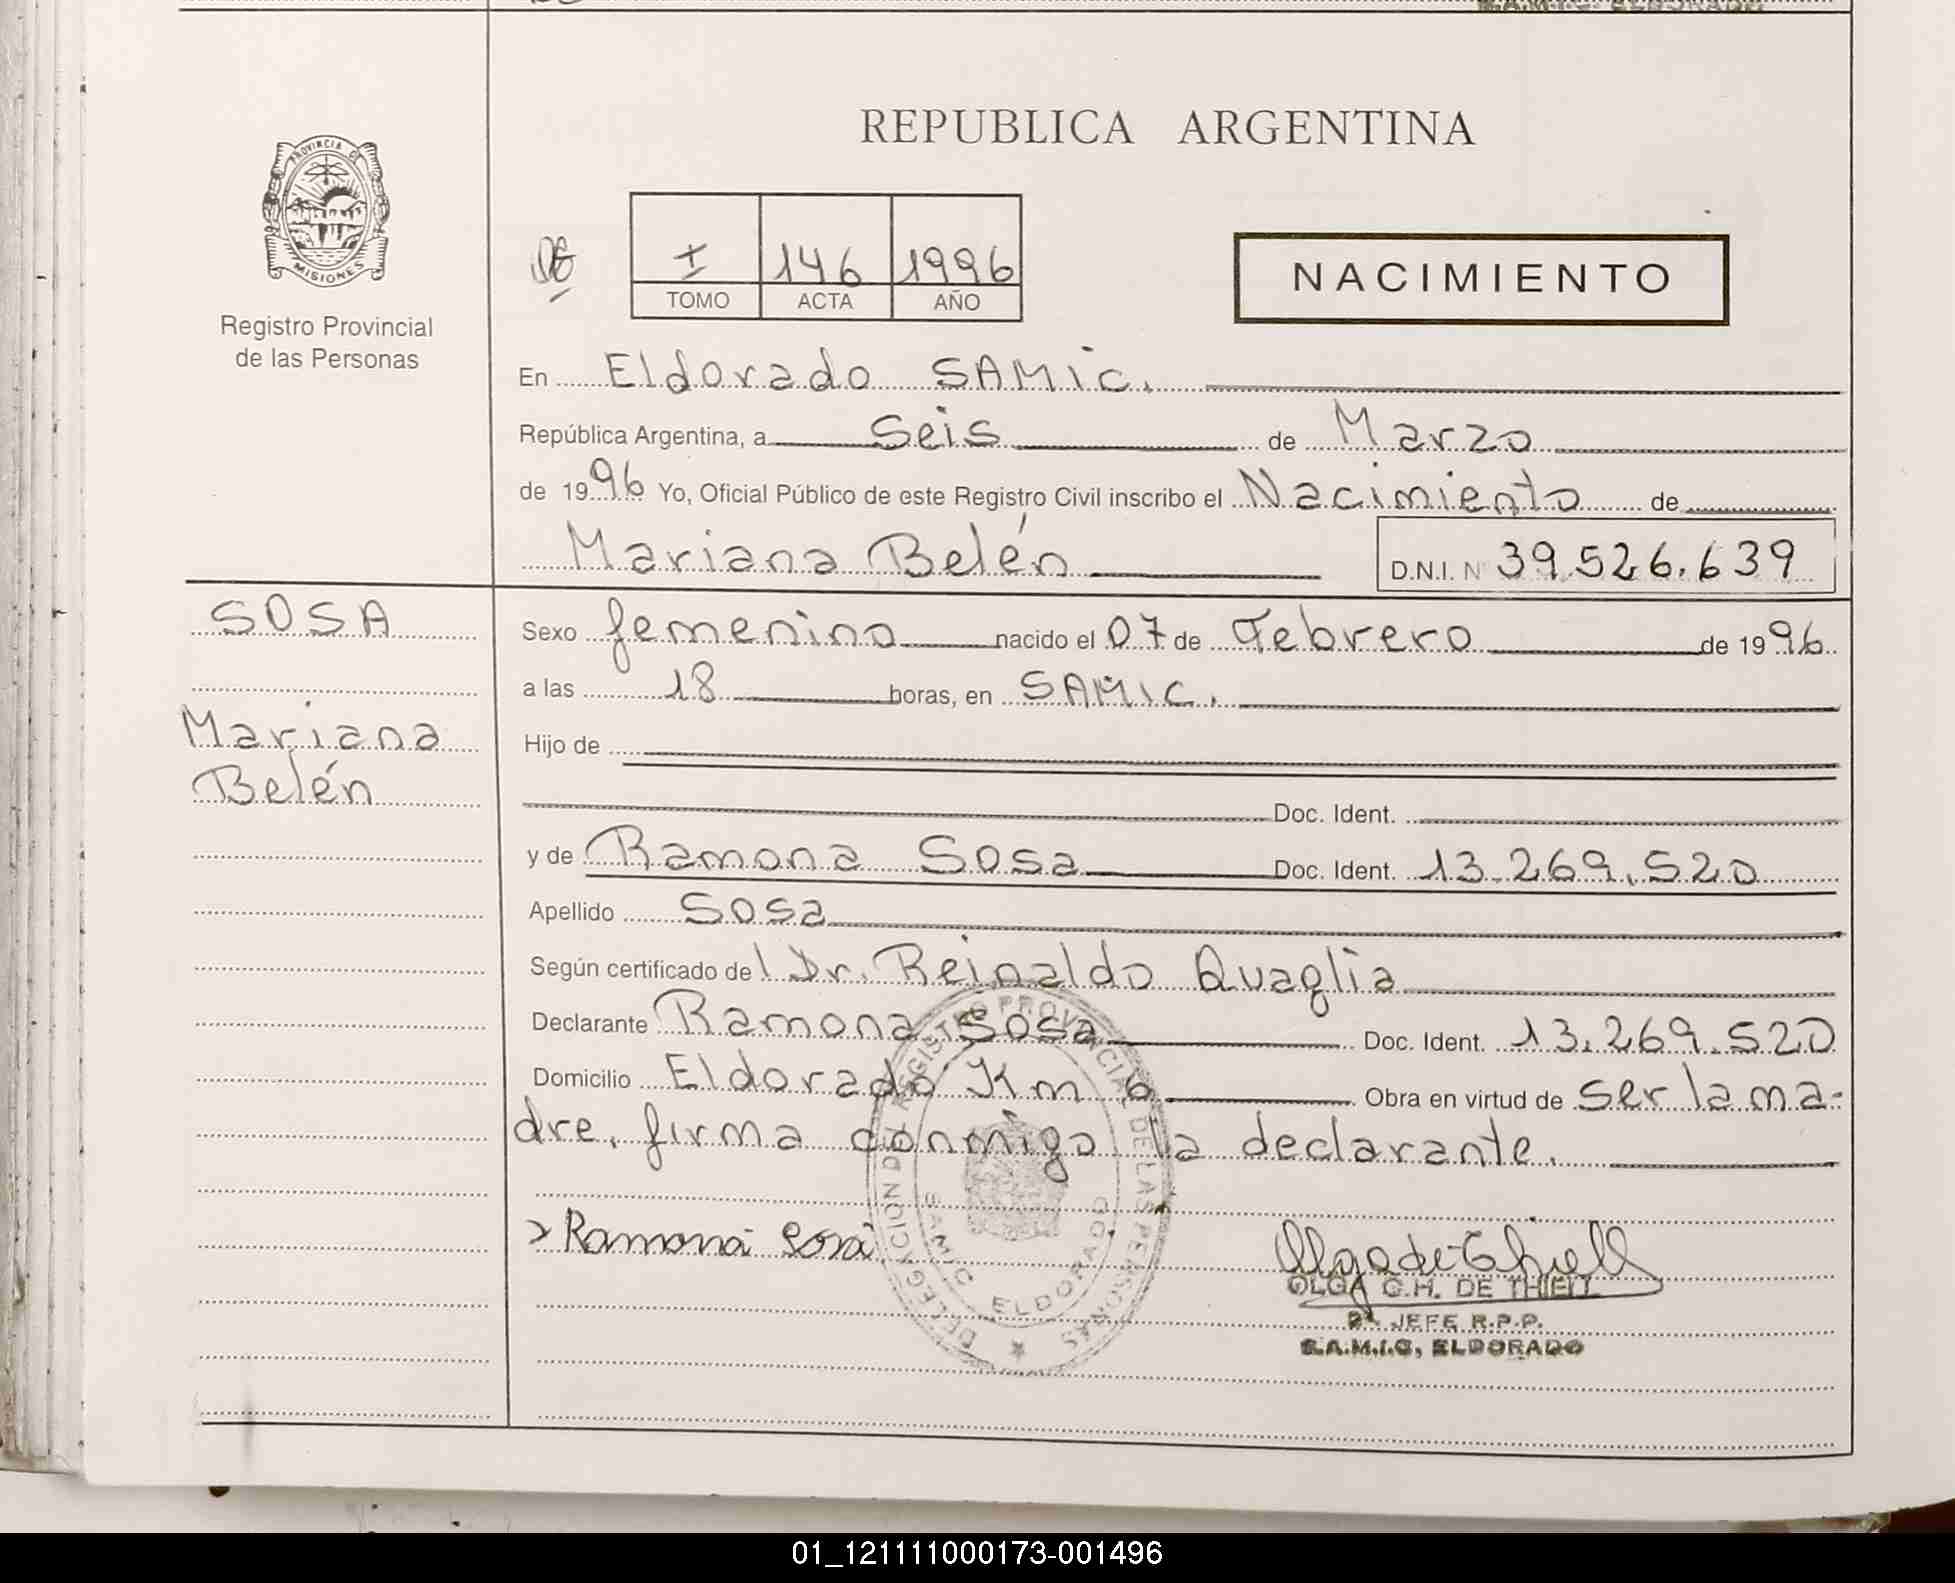 REPUBLICA ARGENTINA
PROVINCIA DE
MISIONES
Registro Provincial
de las Personas
I 146 1996
TOMO ACTA AÑO
NACIMIENTO
En Eldorado SAMIC.
República Argentina, a Seis de Marzo
de 1996 Yo, Oficial Público de este Registro Civil inscribo el Nacimiento de
Mariana Belén D.N.I. N 39.526.639
SOSA
Mariana
Belén
Sexo femenino nacido el 07 de Febrero de 1996
a las 18 horas, en SAMIC.
Hijo de
Doc. Ident.
y de Ramona Sosa Doc. Ident. 13.269.520
Apellido Sosa
Según certificado del Dr. Reinaldo Quaglia
Declarante Ramona Sosa Doc. Ident. 13.269.520
Domicilio Eldorado Km 6 Obra en virtud de ser la ma-
dre, firma conmigo la declarante.
Ramona Sosa
Olga de Thiell
OLGA C.H. DE THIELL
2ª JEFE R.P.P.
S.A.M.I.C. ELDORADO
DELEGACION DEL REGISTRO PROVINCIAL DE LAS PERSONAS
SAMIC ELDORADO
01_121111000173-001496